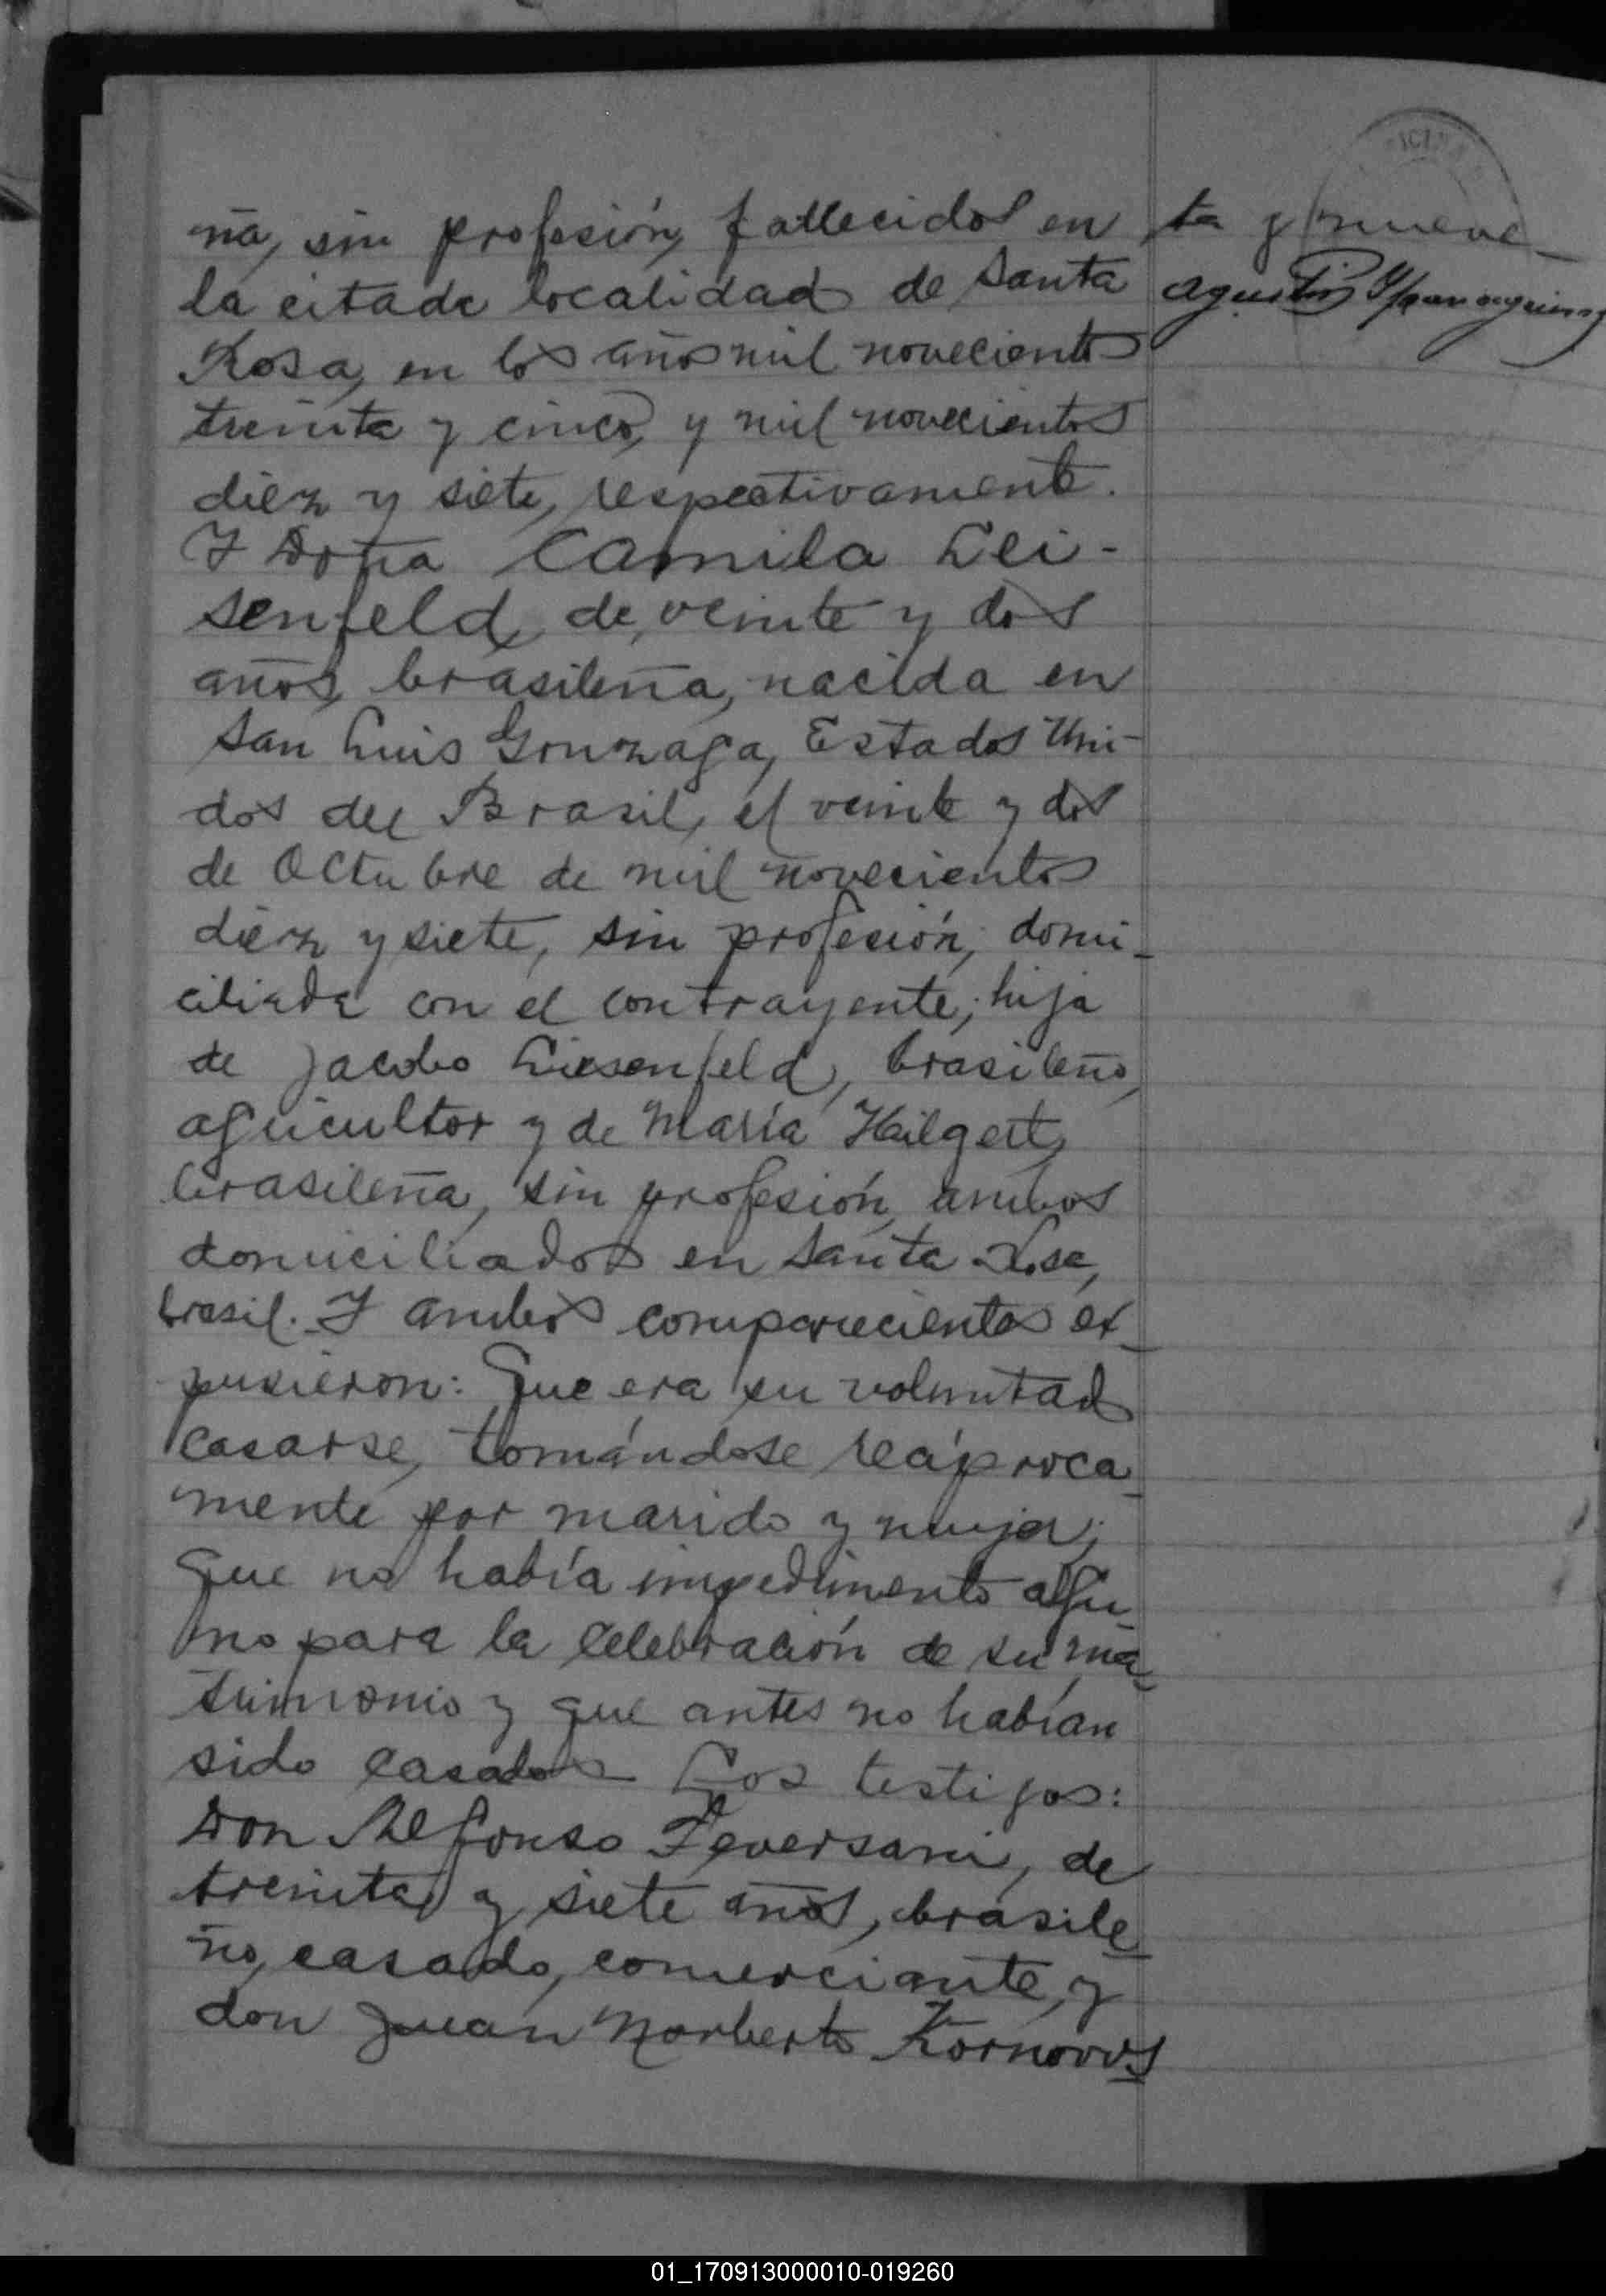 ña, sin profesión, fallecidos en
la citada localidad de Santa
Rosa, en los años mil novecientos
treinta y cinco, y mil novecientos
diez y siete, respectivamente.
Y Doña Camila Lei-
senfeld, de, veinte y dos
años, brasileña, nacida en
San Luis Gonzaga, Estados Uni-
dos del Brasil, el veinte y dos
de Octubre de mil novecientos
diez y siete, sin profesión; domi-
ciliada con el contrayente; hija
de Jacobo Liesenfeld, brasileño,
agricultor y de María Hailgert,
brasileña, sin profesión, ambos
domiciliados en Santa Rosa,
brasil. Y ambos comparecientes ex-
pusieron: Que era su voluntad
casarse, tomándose recíproca-
mente por marido y mujer;
que no había impedimento algu-
no para la celebración de su ma-
trimonio y que antes no habían
sido casados Los testigos:
Don Alfonso Peversani, de
treinta y siete años, brasile-
ño, casado, comerciante, y
don Juan Norberto Kornovos
ta y nueve-
Agustin
01_170913000010-019260